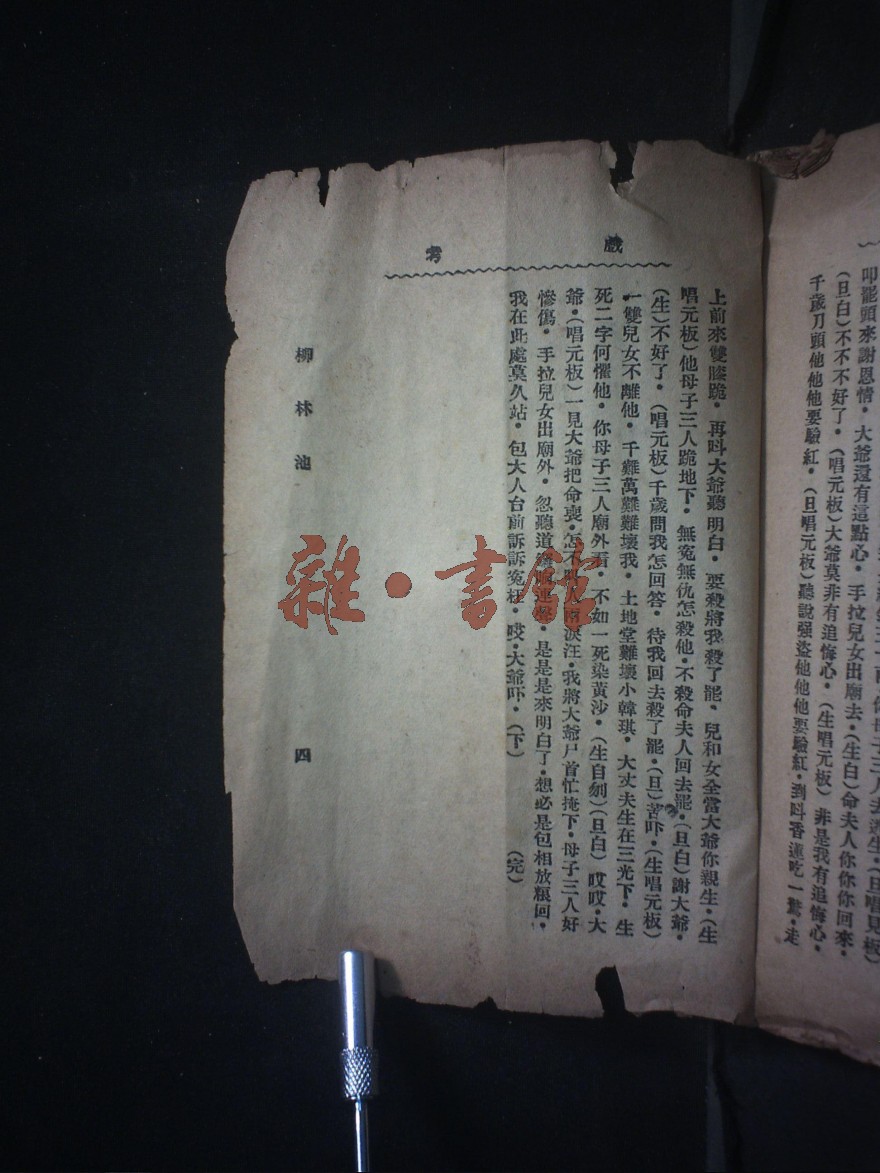 叩罷頭來謝恩情・大爺還有這點心・手拉兒女出廟去・(生白)命夫人你你你回來・
(旦白)不不不好了・(唱元板)大爺莫非有追悔心・(生唱元板)非是我有追悔心・
千歲刀頭他他他要驗紅・(旦唱元板)聽說强盜他他他要驗紅・到呌香蓮吃一驚・走
戲考
上前來雙膝跪・再呌大爺聽明白・要殺將我殺了罷・兒和女全當大爺你親生・(生
唱元板)他母子三人跪地下・無寃無仇怎殺他・不殺命夫人回去罷・(旦白)謝大爺・
(生)不好了・(唱元板)千歲問我怎回答・待我回去殺了罷・(旦)苦吓・(生唱元板)
一雙兒女不離他・千難萬難難壞我・土地堂難壞小韓琪・大丈夫生在三光下・生
死二字何懼他・你母子三人廟外看・不如一死染黃沙・(生自刎)(旦白)哎哎・大
爺・(唱元板)一見大爺把命喪・怎不淚汪・我將大爺尸首忙掩下・母子三人好
慘傷・手拉兒女出廟外・忽聽道・是是是來明白了・想必是包相放糧回・
我在此處莫久站・包大人台前訴訴寃枉・哎・大爺吓・(下)(完)
柳林池
四
雜・書館